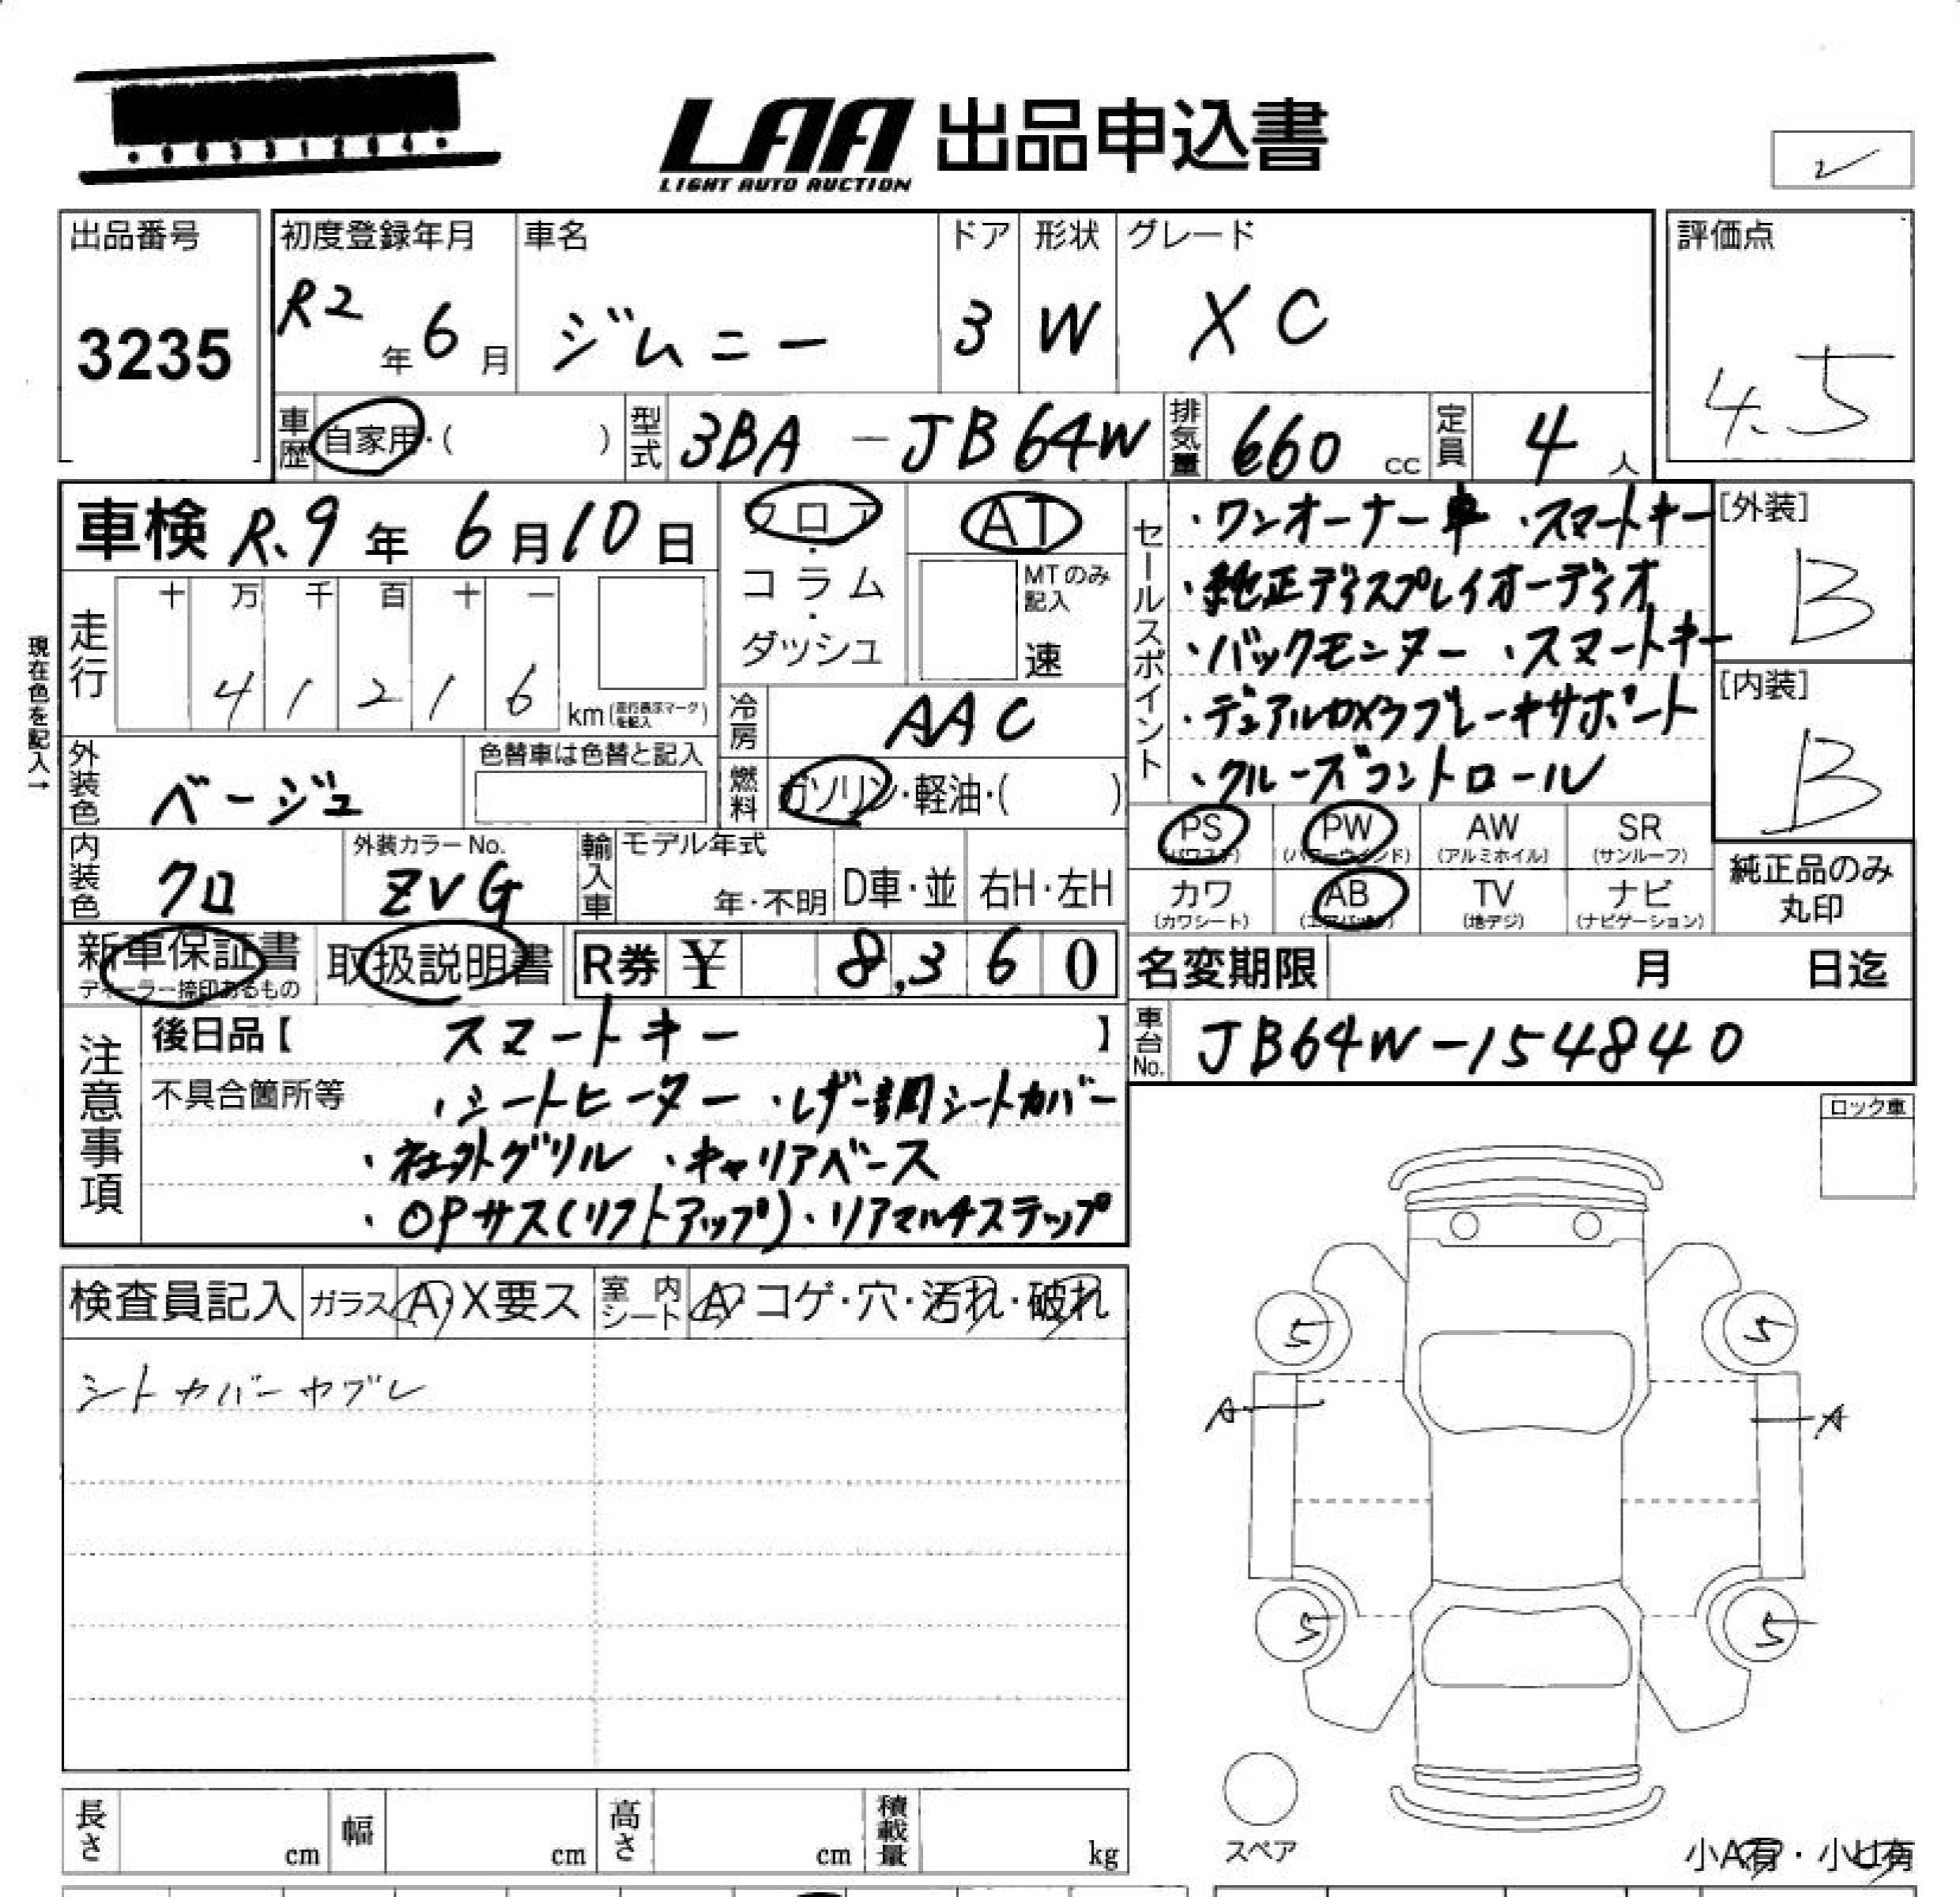 ・00331204・
LAA 出品申込書
LIGHT AUTO AUCTION
出品番号
3235
初度登録年月
R2年6月
車名
ジムニー
ドア
3
形状
W
グレード
XC
評価点
4.5
車歴
自家用・( )
型式
3BA-JB64W
排気量
660 cc
定員
4人
車検 R.9年6月10日
現在色を記入→
走行
十 万 千 百 十 一
4 1 2 1 6
km(走行表示マークを記入)
外装色
ベージュ
色替車は色替と記入
内装色
クロ
外装カラーNo.
ZVG
フロア
・
コラム
・
ダッシュ
AT
MTのみ記入
速
冷房
AAC
燃料
ガソリン・軽油・( )
輸入車
モデル年式
年・不明
D車・並
右H・左H
セールスポイント
・ワンオーナー車 ・スマートキー
・純正ディスプレイオーディオ
・バックモニター ・スマートキー
・デュアルカメラブレーキサポート
・クルーズコントロール
[外装]
B
[内装]
B
PS (パワステ)
PW (パワーウインド)
AW (アルミホイル)
SR (サンルーフ)
カワ (カワシート)
AB (エアバッグ)
TV (地デジ)
ナビ (ナビゲーション)
純正品のみ
丸印
新車保証書
ディーラー捺印あるもの
取扱説明書
R券 ¥ 8,360
名変期限 月 日迄
車台No.
JB64W-154840
注意事項
後日品【 スマートキー 】
不具合箇所等 ・シートヒーター ・レザー調シートカバー
・社外グリル ・キャリアベース
・OPサス(リフトアップ)・リアマルチステップ
ロック車
検査員記入
ガラス A・X要ス
室内シート A・コゲ・穴・汚れ・破れ
シートカバーヤブレ
5
5
A
A
5
5
スペア
小A有・小U有
長さ cm
幅 cm
高さ cm
積載量 kg